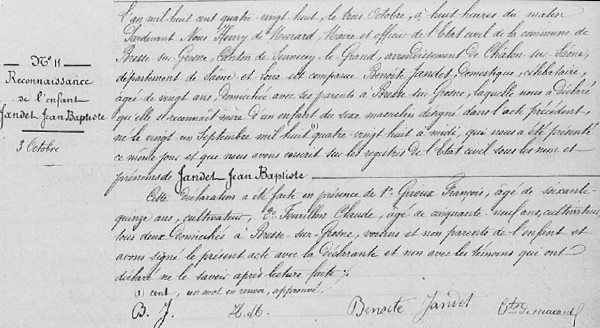 N° 11
Reconnaissance
de l'enfant
Jandet Jean Baptiste
3 Octobre
L'an mil huit cent quatre-vingt huit, le trois Octobre, à huit heures du matin
Pardevant Nous Henry de Murard, Maire et officier de l'Etat civil de la commune de
Bresse sur Grosne, Canton de Sennecey-le-Grand, arrondissement de Châlon-sur-Saône,
département de Saône et Loire est comparue Benoîte Jandet, Domestique, célibataire,
âgée de vingt ans, Domiciliée avec ses parents à Bresse sur Grosne, laquelle nous a déclaré
qu'elle se reconnait mère d'un enfant du sexe masculin désigné dans l'acte précédent,
né le vingt un Septembre mil huit quatre-vingt huit à midi, qui nous a été présenté
ce même jour et que nous avons inscrit sur les registres de l'Etat civil sous les nom et
prénoms de Jandet Jean Baptiste
Cette déclaration a été faite en présence de 1° Giroux François, âgé de soixante-
quinze ans, cultivateur, 2° Claude, âgé de cinquante-neuf ans, cultivateur,
tous deux Domiciliés à Bresse-sur-Grosne, voisins et non parents de l'enfant et
avons signé le présent acte avec la déclarante et non avec les témoins qui ont
déclaré ne le savoir après lecture faite /.
(1) cent, un mot en renvoi, approuvé.
B. J. H. M. Benoite Jandet